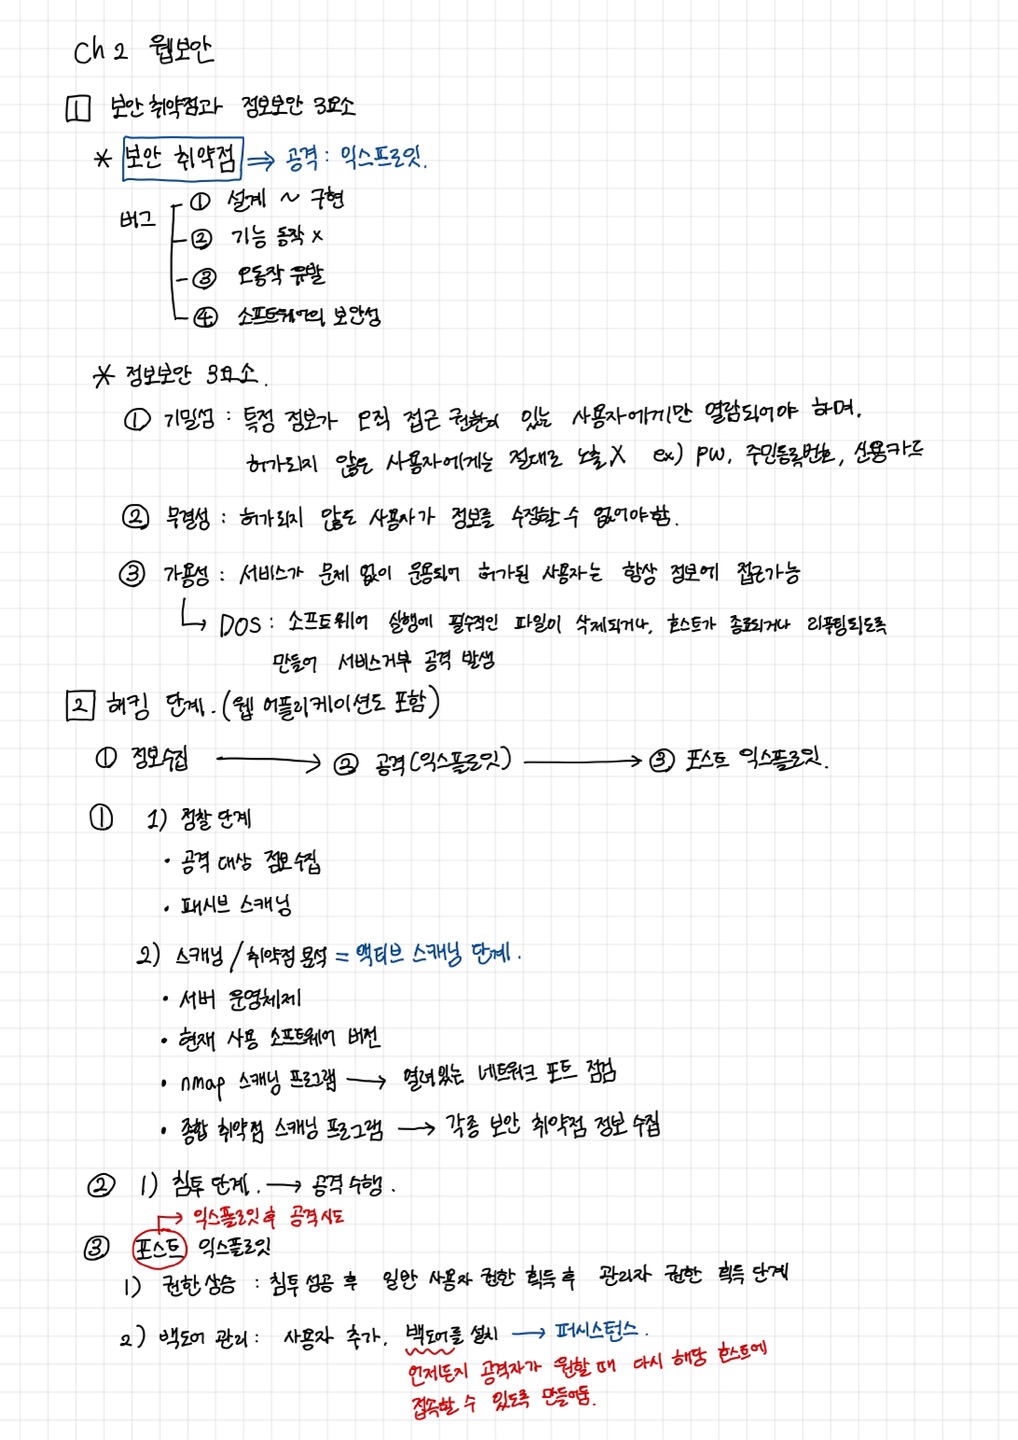 Ch 2 웹보안
1 보안 취약점과 정보보안 3요소
* 보안 취약점 ⇒ 공격 : 익스프로잇.
버그
① 설계 ~ 구현
② 기능 동작 x
③ 오동작 유발
④ 소프트웨어의 보안성
* 정보보안 3요소.
① 기밀성 : 특정 정보가 오직 접근 권한이 있는 사용자에게만 열람되어야 하며.
허가되지 않은 사용자에게는 절대로 노출 X ex) pw, 주민등록번호, 신용카드
② 무결성 : 허가되지 않은 사용자가 정보를 수정할 수 없어야함.
③ 가용성 : 서비스가 문제 없이 운용되어 허가된 사용자는 항상 정보에 접근가능
↳ DOS : 소프트웨어 실행에 필수적인 파일이 삭제되거나, 호스트가 종료되거나 리부팅되도록
만들어 서비스거부 공격 발생
2 해킹 단계. (웹 어플리케이션도 포함)
① 정보수집 → ② 공격(익스플로잇) → ③ 포스트 익스플로잇.
① 1) 정찰 단계
• 공격 대상 정보수집
• 패시브 스캐닝
2) 스캐닝 / 취약점 분석 = 액티브 스캐닝 단계.
• 서버 운영체제
• 현재 사용 소프트웨어 버전
• nmap 스캐닝 프로그램 → 열려있는 네트워크 포트 점검
• 종합 취약점 스캐닝 프로그램 → 각종 보안 취약점 정보 수집
② 1) 침투 단계. → 공격 수행.
→ 익스플로잇 후 공격시도
③ 포스트 익스플로잇
1) 권한상승 : 침투 성공 후 일반 사용자 권한 획득 후 관리자 권한 획득 단계
2) 백도어 관리 : 사용자 추가, 백도어를 설치 → 퍼시스턴스.
언제든지 공격자가 원할 때 다시 해당 호스트에
접속할 수 있도록 만들어둠.